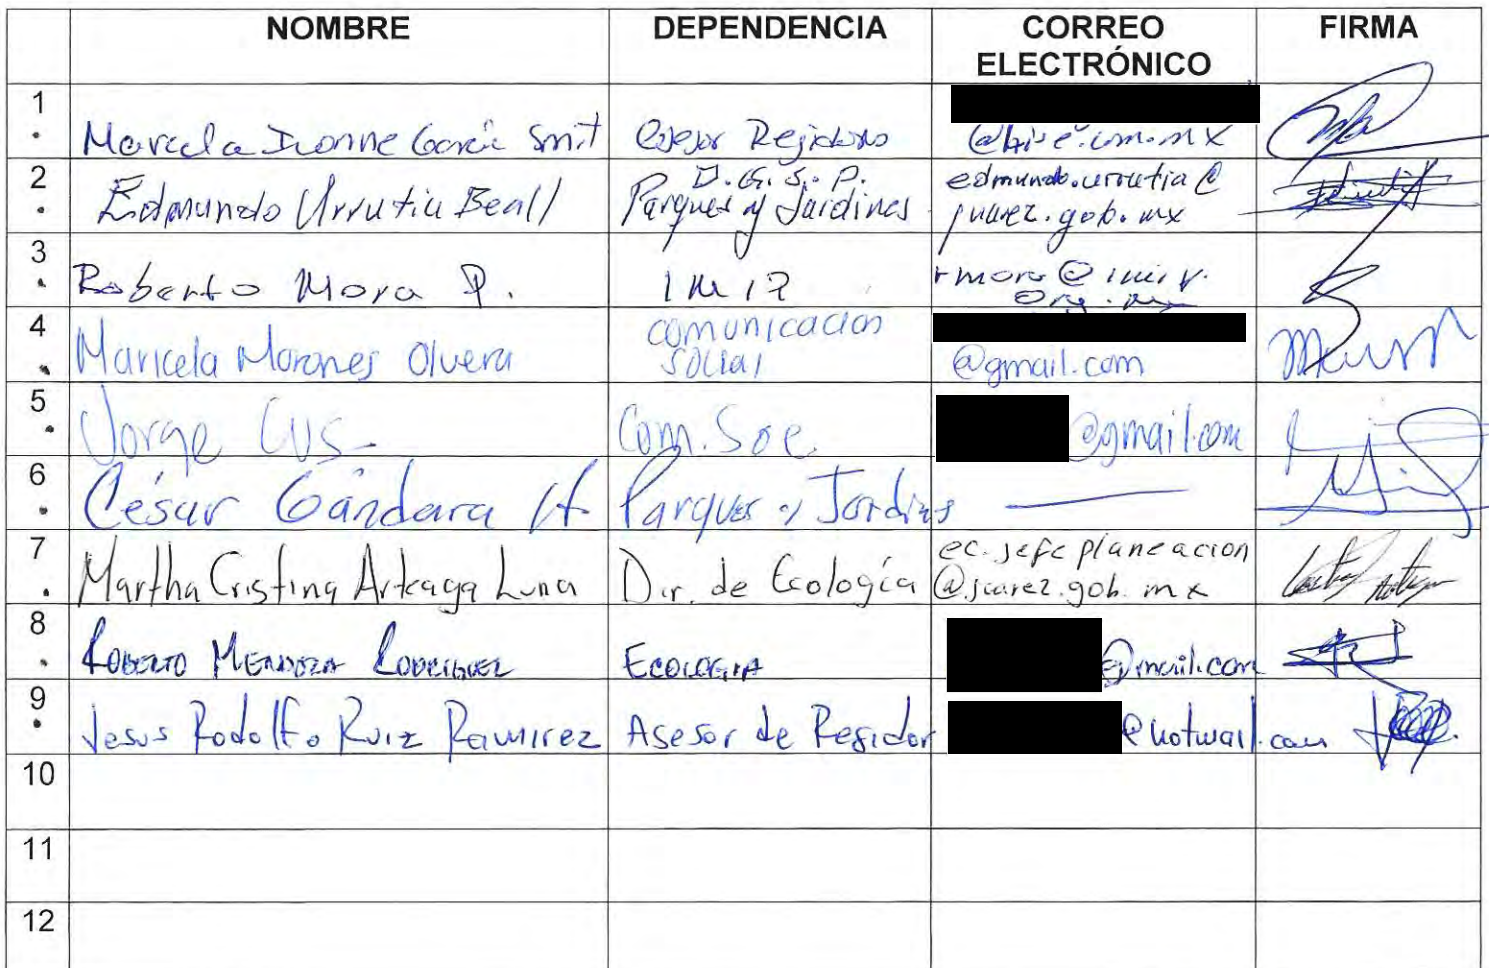 NOMBRE DEPENDENCIA CORREO ELECTRÓNICO FIRMA
1. Marcela Ivonne García Smit Regidores
2. Edmundo Urrutia Beall D.G.S.P. Parques y Jardines edmundo.urrutia@juarez.gob.mx
3. Roberto Mora P. IMIP rmora@imip.org.mx
4. Maricela Morones Olvera comunicacion social @gmail.com
5. Jorge Com. Soc. @gmail.com
6. César Gándara H. Parques y Jardines —
7. Martha Cristina Arteaga Luna Dir. de Ecología ec.jefeplaneacion@juarez.gob.mx
8. ROBERTO MENDOZA RODRIGUEZ ECOLOGIA
9. Jesus Rodolfo Ruiz Ramirez Asesor de Regidor @hotmail.com
10
11
12